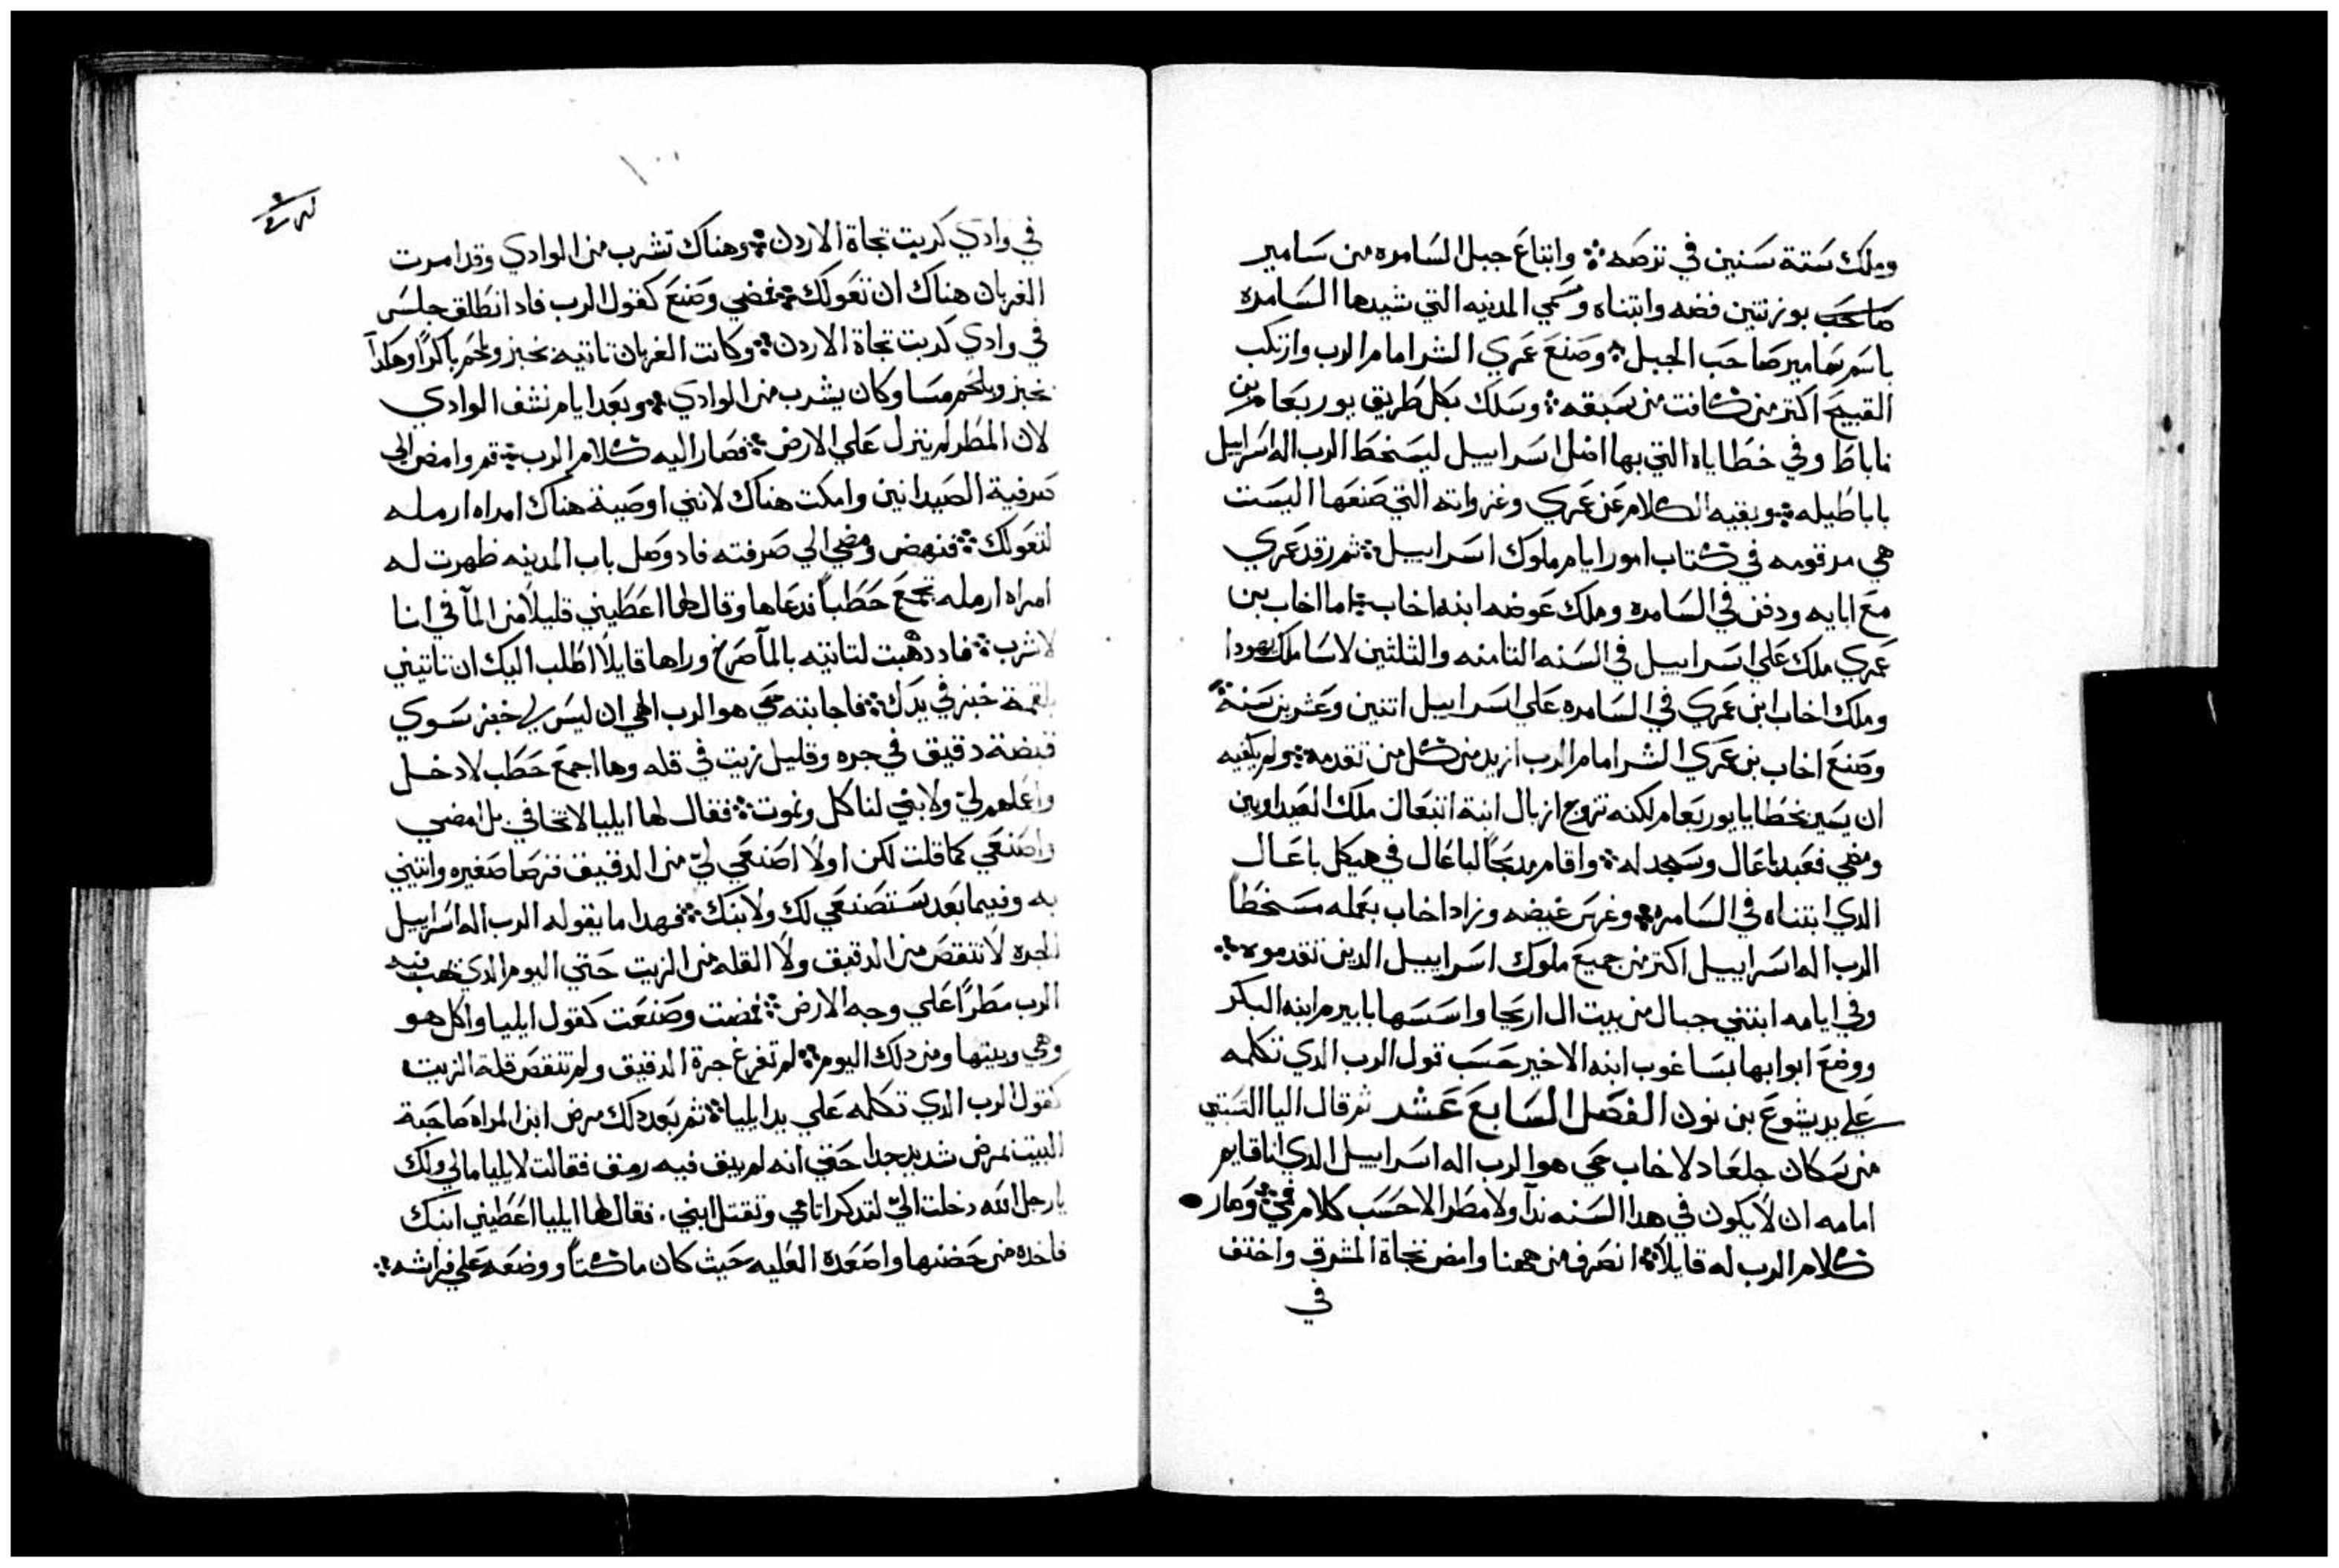 وملك ستة سنين في ترصه ܀ وابتاع جبل السامره من سامير
بوزنتين فضه وابتناه وسمي المدينه التي شيدها السامره
باسم سامير صاحب الجبل ܀ وصنع عمري الشر امام الرب وارتكب
القبيح اكتر من كافت من سبقه ܀ وسلك بكل طريق يوربعام بن
ناباط وفي خطاياه التي بها اضل اسراييل ليسخط الرب اله اسراييل
باباطيله ܀ وبقيه الكلام عن عمري وغزواته التي صنعها اليست
هي مرقومه في كتاب امور ايام ملوك اسراييل ܀ ثم رقد عمري
مع ابايه ودفن في السامره وملك عوضه ابنه اخاب ܀ اما اخاب بن
عمري ملك علي اسراييل في السنه التامنه والثلثين لاسا ملك يهودا
وملك اخاب ابن عمري في السامره علي اسراييل اتنين وعشرين سنة
وصنع اخاب بن عمري الشر امام الرب ازيد من كل من تقدمه ܀ ولم يكفيه
ان يسير بخطايا يوربعام لكنه تزوج ازبال ابنة اتبعال ملك الصيداويين
ومضي فعبد باعال وسجد له ܀ واقام مدبحا لباعال في هيكل باعال
الدي ابتناه في السامره ܀ وغرس غيضه وزاد اخاب بعمله مسخطا
الرب اله اسراييل اكتر من جميع ملوك اسراييل الدين تقدموه ܀
وفي ايامه ابتني حيال من بيت ال اريحا واسسها بابيرم ابنه البكر
ووضع ابوابها بساغوب ابنه الاخير حسب قول الرب الدي تكلمه
علي يد يشوع بن نون الفصل السابع عشر ثم قال اليا التستي
من سكان جلعاد لاخاب حي هو الرب اله اسراييل الدي انا قايم
امامه ان لا يكون في هدا السنه ندا ولا مطر الا حسب كلام في ܀ وصار
كلام الرب له قايلا ܀ انصرف من ههنا وامض تجاة المشرق واختف
في
١٠٠
في وادي كريت تجاة الاردن ܀ وهناك تشرب من الوادي وقد امرت
الغربان هناك ان تعولك ܀ فمضي وصنع كقول الرب فاد انطلق جلس
في وادي كريت تجاة الاردن ܀ وكانت الغربان تاتيه بخبز ولحم باكرا وهكدا
بخبز وبلحم مسا وكان يشرب من الوادي ܀ وبعد ايام نشف الوادي
لان المطر لم ينزل علي الارض ܀ فصار اليه كلام الرب ܀ قم وامض الي
صرفية الصيدانين وامكت هناك لانني اوصية هناك امراه ارمله
لتعولك ܀ فنهض ومضي الي صرفته فاد وصل باب المدينه ظهرت له
امراه ارمله تجمع حطبا فدعاها وقال لها اعطيني قليلا من المآ في انا
لاشرب ܀ فاد دهبت لتاتيه بالمآ صرخ وراها قايلا اطلب اليك ان تاتيني
بلقمة خبز في يدك ܀ فاجابته حي هو الرب الهي ان ليس لي خبز سوي
قبضة دقيق في جره وقليل زيت في قله وها اجمع حطب لادخل
واعملهم لي ولابني لناكل ونموت ܀ فقال لها ايليا لا تخافي بل امضي
واصنعي كما قلت لكن اولا اصنعي لي من الدقيق قرصا صغيره واتيني
به وفيما بعد ستصنعي لك ولابنك ܀ فهدا ما يقوله الرب اله اسراييل
الجره لا تنقص من الدقيق ولا القله من الزيت حتي اليوم الدي يهب فيه
الرب مطرا علي وجه الارض ܀ فمضت وصنعت كقول ايليا واكل هو
وهي وبيتها ومن دلك اليوم ܀ لم تفرغ جرة الدقيق ولم تنقص قلة الزيت
كقول الرب الدي تكلمه علي يد ايليا ܀ ثم بعد دلك مرض ابن المراه صاحبة
البيت بمرض شديد جدا حتي انه لم يبق فيه رمق فقالت لايليا مالي ولك
يا رجل الله دخلت الي لتدكر اتامي وتقتل ابني . فقال لها ايليا اعطيني ابنك
فاخده من حضنها واصعده العليه حيث كان ماكتا ووضعه علي فراشه ܀